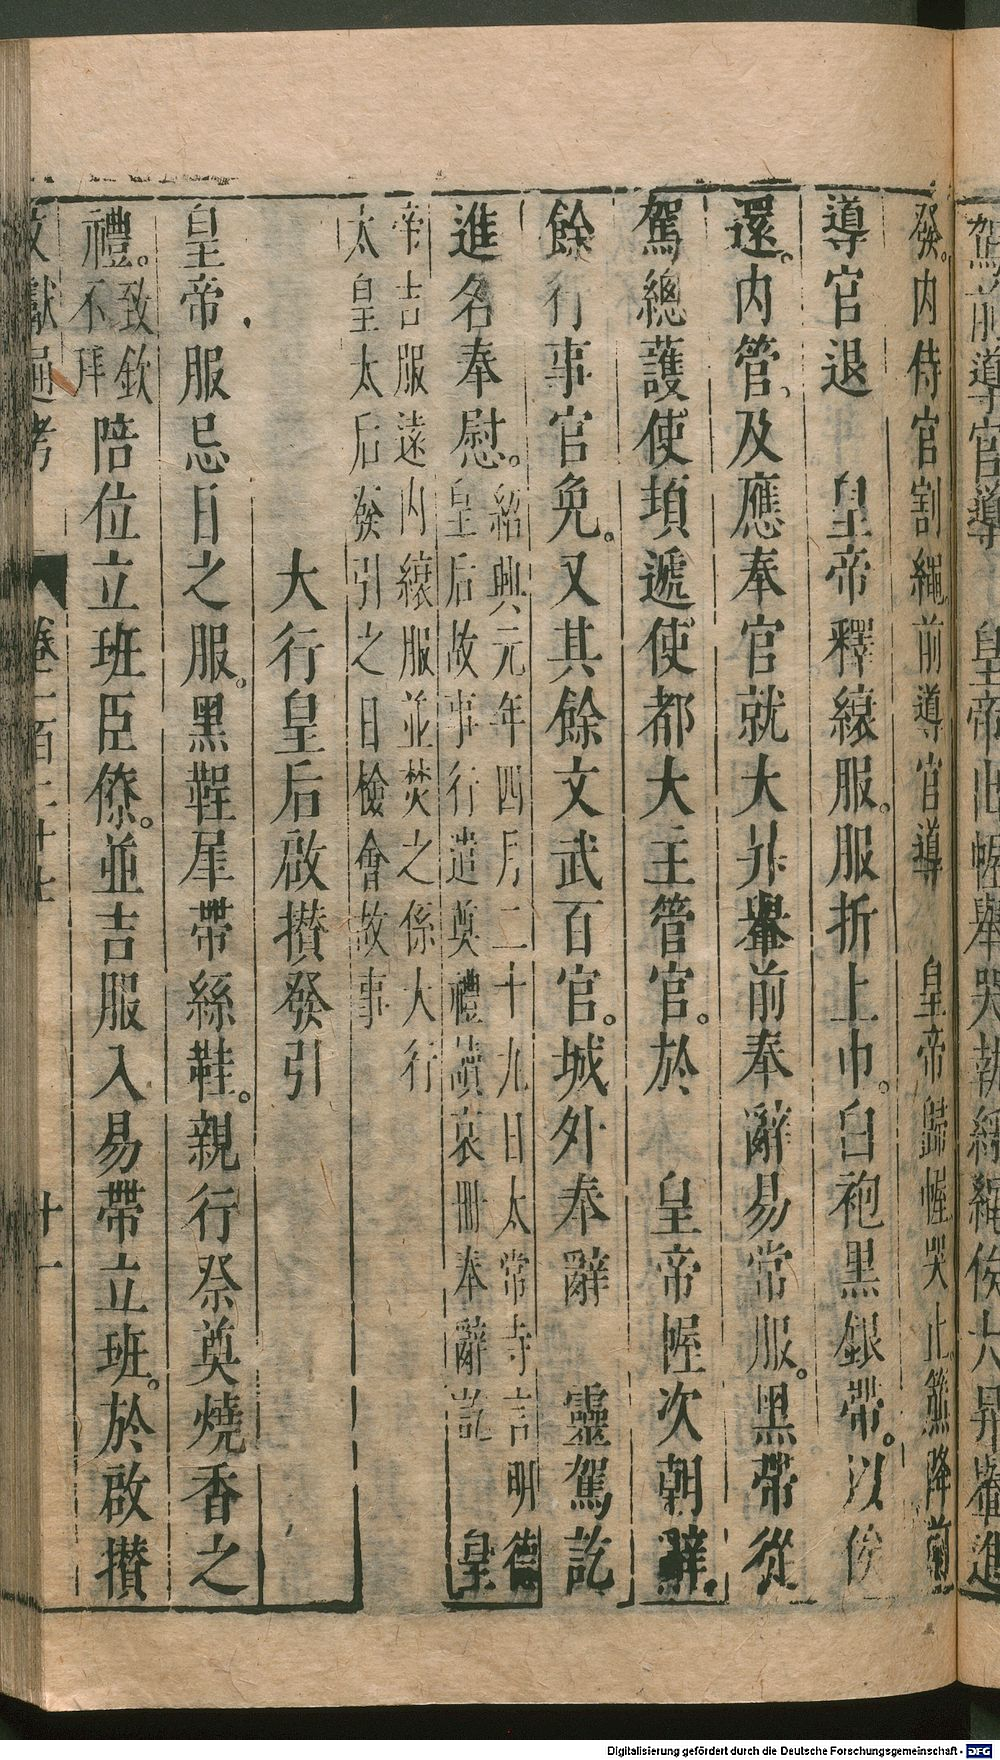 發內侍官割繩前導官導　皇帝歸幄哭止熊降前
導官退　皇帝釋縗服服折上巾白袍黑銀帶以俟
還內管及應奉官就大昇轝前奉辭易常服黑帶從
駕總護使頓遞使都大主管官於　皇帝幄次朝辭
餘行事官免又其餘文武百官城外奉辭　靈駕訖
進名奉慰
紹興元年四月二十九日太常寺言明德
皇后故事行遣奠禮讀哀冊奉辭訖　皇
帝吉服還內縗服並焚之係大行
太皇太后發引之日檢會故事
大行皇后啟攢發引
皇帝服忌日之服黑鞓犀帶絲鞋親行祭奠燒香之
禮
致欽
不拜
陪位立班臣僚並吉服入易帶立班於啟攢
文獻通考
卷一百二十七
廿一
Digitalisierung gefördert durch die Deutsche Forschungsgemeinschaft - DFG